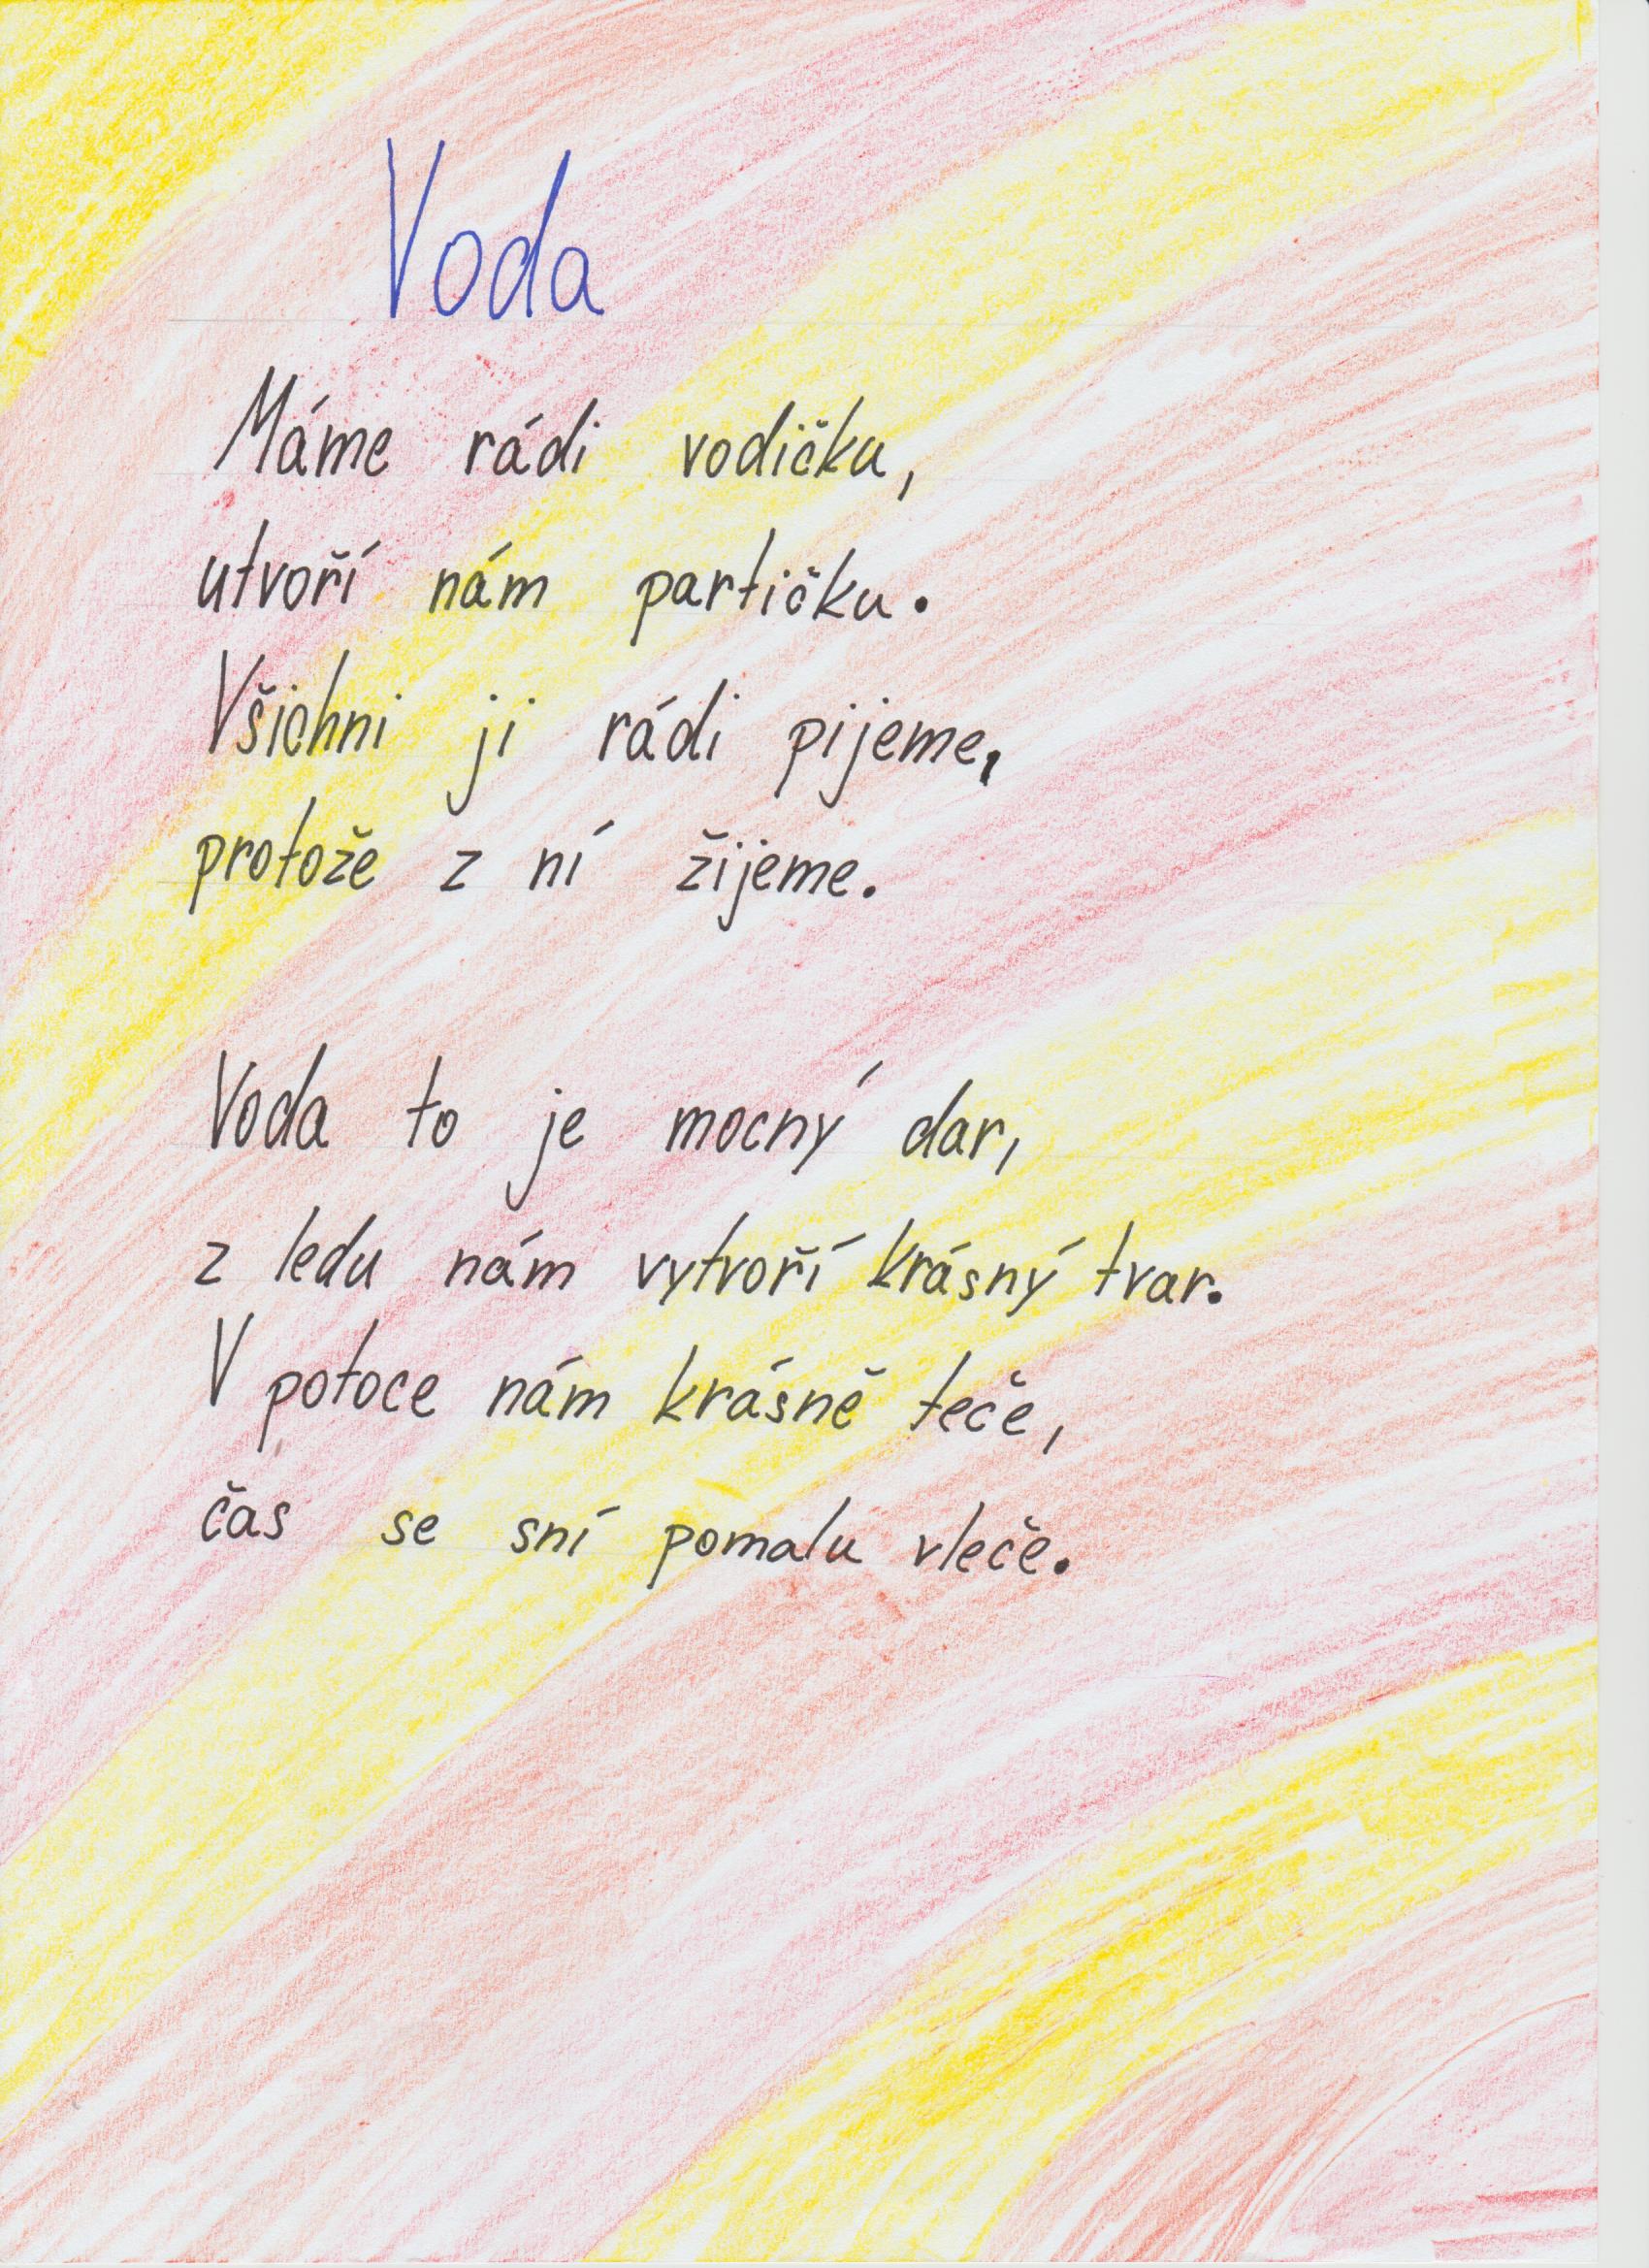 Voda
Máme rádi vodičku,
utvoří nám partičku.
Všichni ji rádi pijeme,
protože z ní žijeme.
Voda to je mocný dar,
z ledu nám vytvoří krásný tvar.
V potoce nám krásně teče,
čas se sní pomalu vleče.